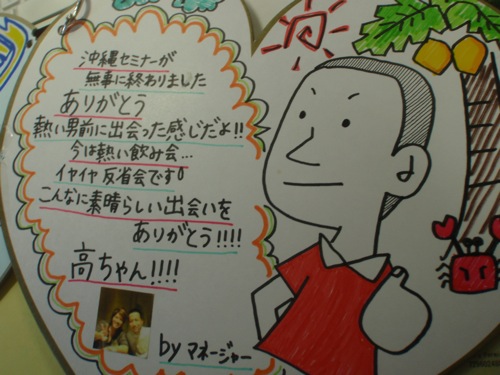 沖縄セミナーが
無事に終わりました
ありがとう
熱い男前に出会った感じだよ!!
今は熱い飲み会…
イヤイヤ反省会です!
こんなに素晴らしい出会いを
ありがとう!!!!
高ちゃん!!!!
by マネージャー